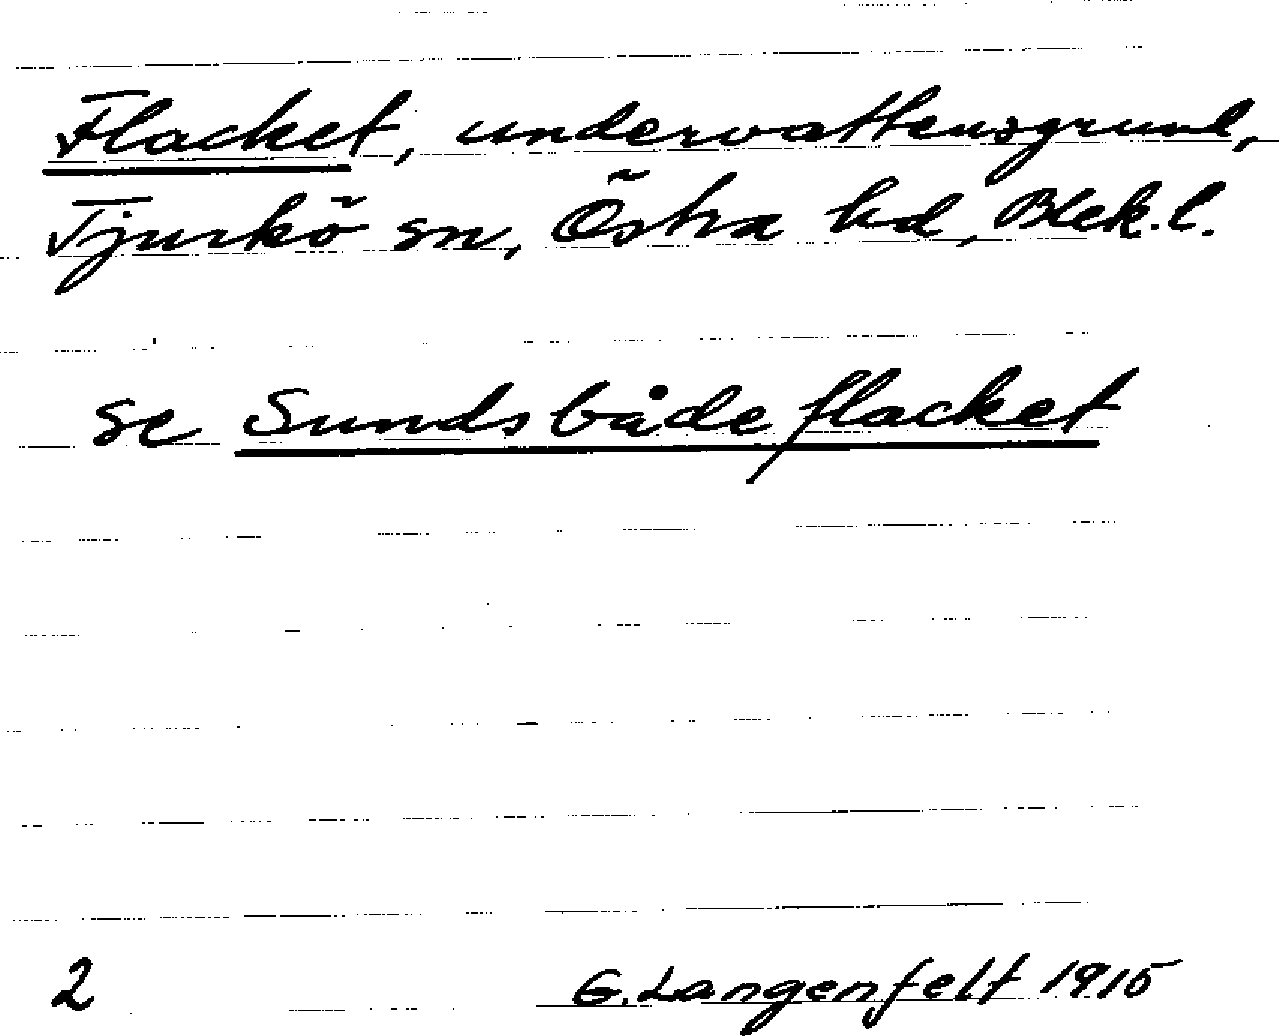 Flacket, undervattensgrund,
Tjurkö sn, Östra hd, Blek. l.
se Sundsbådeflacket
2 G. Langenfelt 1915